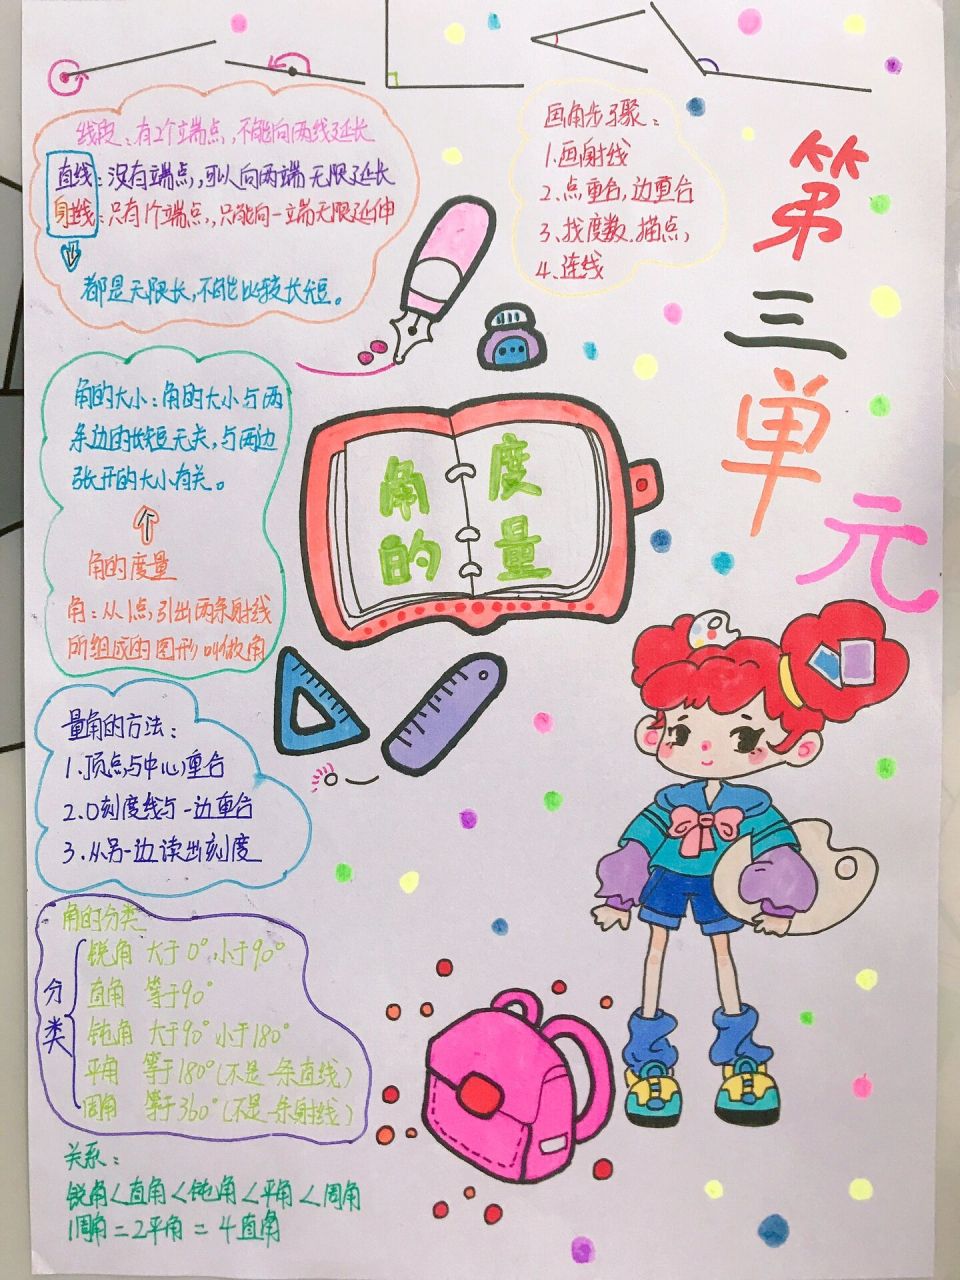 线段:有2个端点,不能向两线延长
直线:没有端点,可以向两端无限延长
射线:只有1个端点,只能向一端无限延伸
都是无限长,不能比较长短。
画角步骤:
1.画射线
2.点重合,边重合
3.找度数.描点,
4.连线
第三单元
角的度量
角的大小:角的大小与两
条边的长短无关,与两边
张开的大小有关。
角的度量
角:从1点,引出两条射线
所组成的图形叫做角
量角的方法:
1.顶点与中心重合
2.0刻度线与一边重合
3.从另一边读出刻度
角的分类
分类
锐角 大于0°小于90°
直角 等于90°
钝角 大于90°小于180°
平角 等于180°(不是一条直线)
周角 等于360°(不是一条射线)
关系:
锐角<直角<钝角<平角<周角
1周角=2平角=4直角